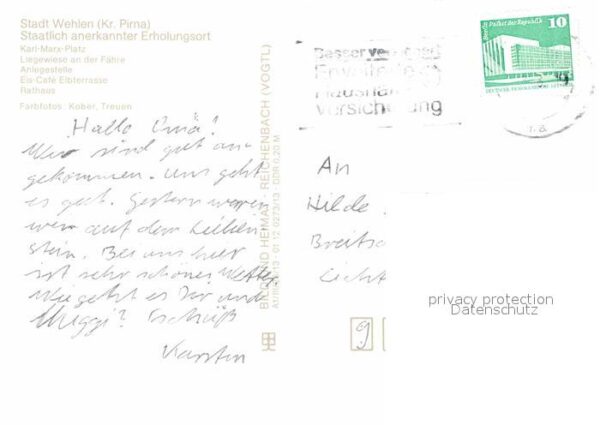 Stadt Wehlen (Kr. Pirna)
Staatlich anerkannter Erholungsort
Karl-Marx-Platz
Liegewiese an der Fähre
Anlegestelle
Eis-Café Elbterrasse
Rathaus
Farbfotos: Kober, Treuen
Hallo Omã!
Wir sind gut an-
gekommen. Uns geht
es gut. Gestern waren
wir auf dem Lilien
stein. Bei uns hier
ist sehr schönes Wetter.
Wie geht es Dir und
Muggi? Tschüß
Karsten
BILD UND HEIMAT · REICHENBACH (VOGTL)
01 12 0273/13 · DDR 0,20 M
Besser
Erweiterte
Haushalt
Versicherung
Berlin Palast der Republik
10
DEUTSCHE DEMOKRATISCHE
An
Hilde
Breitsc
Licht
privacy protection
Datenschutz
g